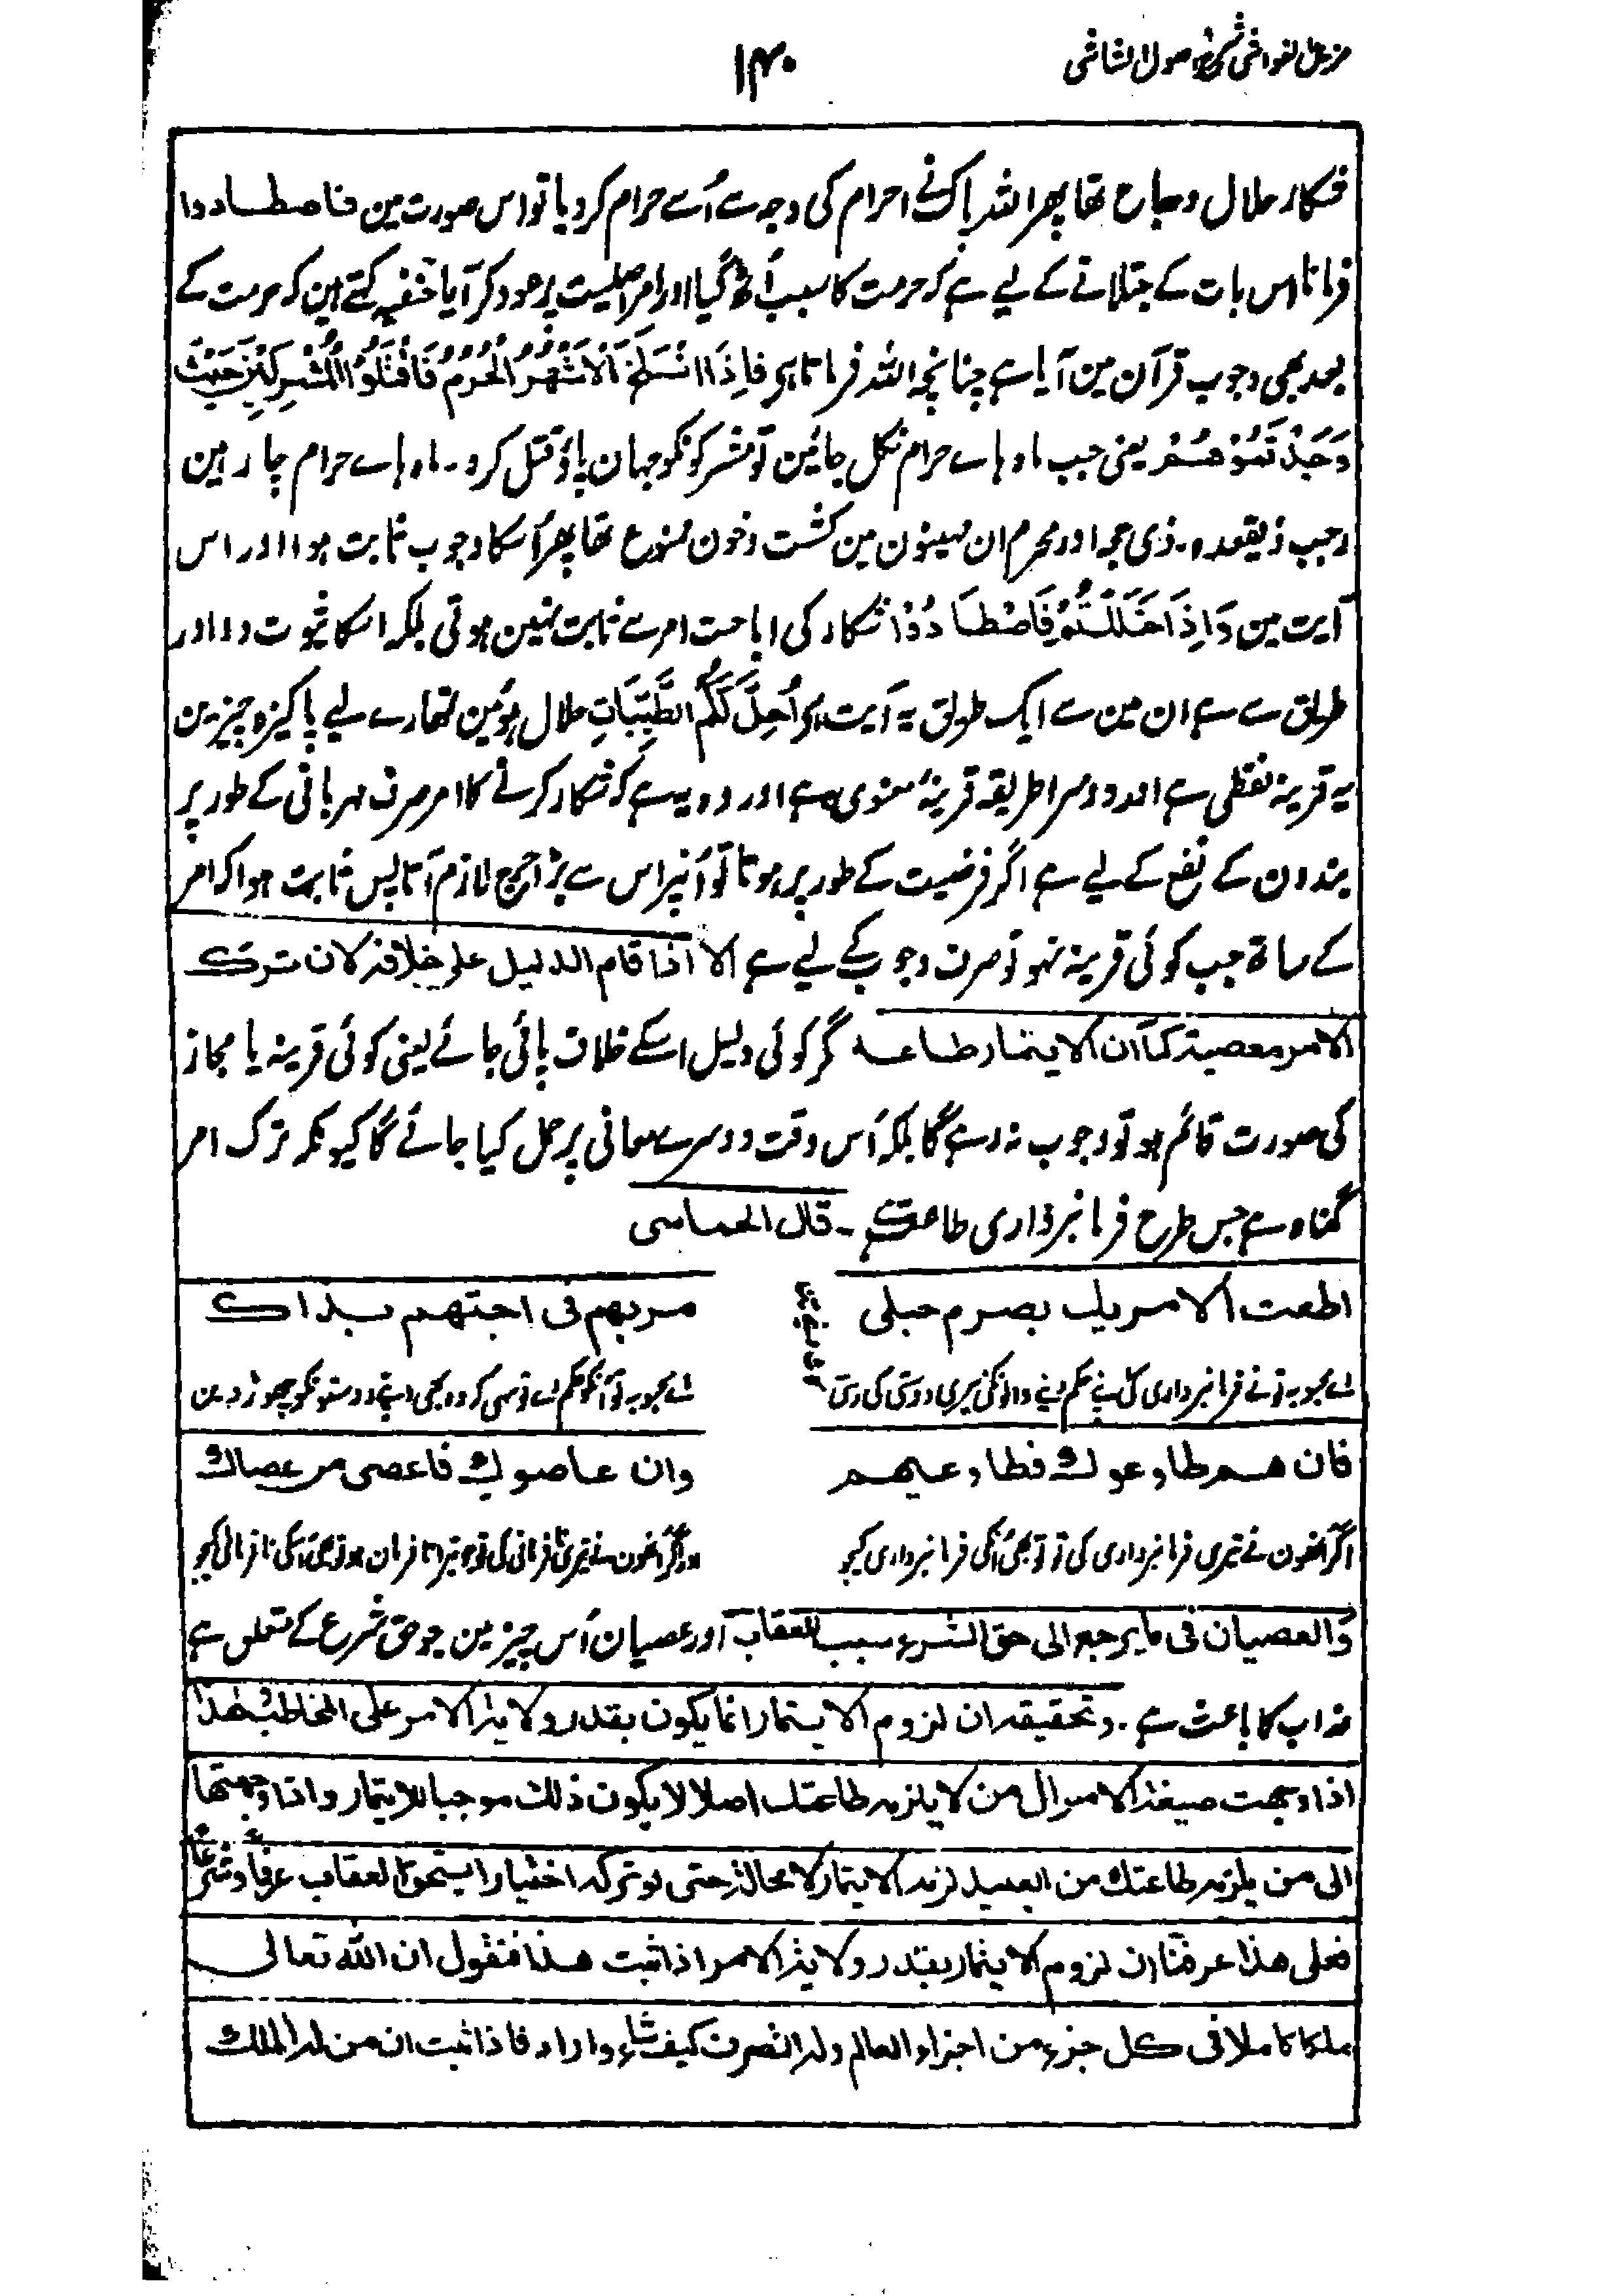 مزیل الغواشی شرح اصول الشاشی
۱۴۰
شکار حلال و مباح تھا پھر اللہ پاک نے احرام کی وجہ سے اُسے حرام کر دیا تو اس صورت مین فاصطادوا
فرمانا اس بات کے جتلانے کے لیے ہے کہ حرمت کا سبب اُٹھ گیا اور امر اصلیت پر عود کر آیا حنفیہ کہتے ہین کہ حرمت کے
بعد بھی وجوب قرآن مین آیا ہے چنانچہ اللہ فرماتا ہے فَاِذَا انْسَلَخَ الْاَشْهُرُ الْحُرُمُ فَاقْتُلُوا الْمُشْرِكِيْنَ حَيْثُ
وَجَدْتُمُوْهُمْ یعنی جب ماہ ہاے حرام نکل جائین تو مشرکونکو جہان پاؤ قتل کرو۔ ماہ ہاے حرام چار ہین
رجب ذیقعدہ۔ ذی حجہ اور محرم ان مہینون مین کشت و خون ممنوع تھا پھر اُسکا وجوب ثابت ہوا اور اس
آیت مین وَاِذَا حَلَلْتُمْ فَاصْطَادُوْا شکار کی اباحت امر سے ثابت نہین ہوتی بلکہ اسکا ثبوت دو اور
طریق سے ہے ان مین سے ایک طریق یہ آیت ہے اُحِلَّ لَكُمُ الطَّيِّبَاتِ حلال ہوئین تمھارے لیے پاکیزہ چیزین
یہ قرینۂ لفظی ہے اور دوسرا طریقہ قرینۂ معنوی ہے اور وہ یہ ہے کہ شکار کرنے کا امر صرف مہربانی کے طور پر
بندون کے نفع کے لیے ہے اگر فرضیت کے طور پر ہوتا تو اُنپر اس سے بڑا حرج لازم آتا پس ثابت ہوا کہ امر
کے ساتھ جب کوئی قرینہ نہو تو صرف وجوب کے لیے ہے الا اذا قام الدلیل علی خلافہ لان ترک
الامر معصیۃ کما ان الایتمار طاعۃ مگر کوئی دلیل اسکے خلاف پائی جائے یعنی کوئی قرینہ یا مجاز
کی صورت قائم ہو تو وجوب نہ رہے گا بلکہ اُس وقت دوسرے معانی پر حمل کیا جائے گا کیونکہ ترک امر
گناہ ہے جس طرح فرمانبرداری طاعت ہے۔ قال الحماسی
اطعت لآمریک بصرم حبلی مریہم فی احبتہم بذاک
اے محبوبہ تو نے فرمانبرداری کی اپنے حکم دینے والونکی میری دوستی کی رسی اے محبوبہ تو اُنکو حکم دے تو سہی کہ وہ بھی اپنے دوستونکو چھوڑ دین
فان ہم طاوعوک فطاوعیہم وان عاصوک فاعصی من عصاک
اگر اُنھون نے تیری فرمانبرداری کی تو تو بھی اُنکی فرمانبرداری کیجو اور اگر اُنھون نے تیری نافرمانی کی تو جو تیرا نافرمان ہو تو بھی اُسکی نافرمانی کیجو
والعصیان فی ما یرجع الی حق الشرع سبب للعقاب اور عصیان اُس چیز مین جو حق شرع کے متعلق ہے
عذاب کا باعث ہے۔ وتحقیقہ ان لزوم الایتمار انما یکون بقدر ولایۃ الامر علی المخاطب لھذا
اذا وجہت صیغۃ الامر الی من لا یلزمہ طاعتک اصلا لا یکون ذلک موجبا للایتمار واذا وجہتھا
الی من یلزمہ طاعتک من العبید لزمہ الایتمار لا محالۃ حتی لو ترکہ اختیارا یستحق العقاب عرفا وشرعا
فعلی ھذا عرفنا ان لزوم الایتمار بقدر ولایۃ الامر اذا ثبت ھذا فنقول ان اللہ تعالی
ملکا کاملا فی کل جزء من اجزاء العالم ولہ التصرف کیف شاء واراد فاذا ثبت ان من لہ الملک